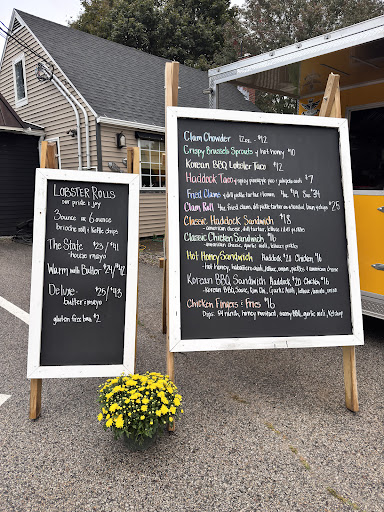 LOBSTER ROLLS
our pride & joy
3 ounce or 6 ounce
brioche roll & kettle chips
The State $23/$41
house mayo
Warm with Butter $24/$42
Deluxe $25/$43
butter & mayo
gluten free bun $2
Clam Chowder 12oz. $12
Crispy Brussels Sprouts hot honey $10
Korean BBQ Lobster Taco $12
Haddock Taco spicy pineapple pico & jalapeño aioli $7
Fried Clams dill pickle tartar & lemon 4oz. $19 8oz. $34
Clam Roll 4oz. fried clams, dill pickle tartar on $25
Classic Haddock Sandwich $18
american cheese, dill tartar, lettuce & dill pickles
Classic Chicken Sandwich $16
american cheese, garlic aioli, lettuce & pickles
Hot Honey Sandwich Haddock $20 Chicken $16
hot honey, aioli, lettuce, onion, pickles & american cheese
Korean BBQ Sandwich Haddock $20 Chicken $16
Korean BBQ Sauce, Garlic Aioli, lettuce, tomato, onion
Chicken Fingers & Fries $16
Dips: honey mustard, BBQ, garlic aioli, Ketchup